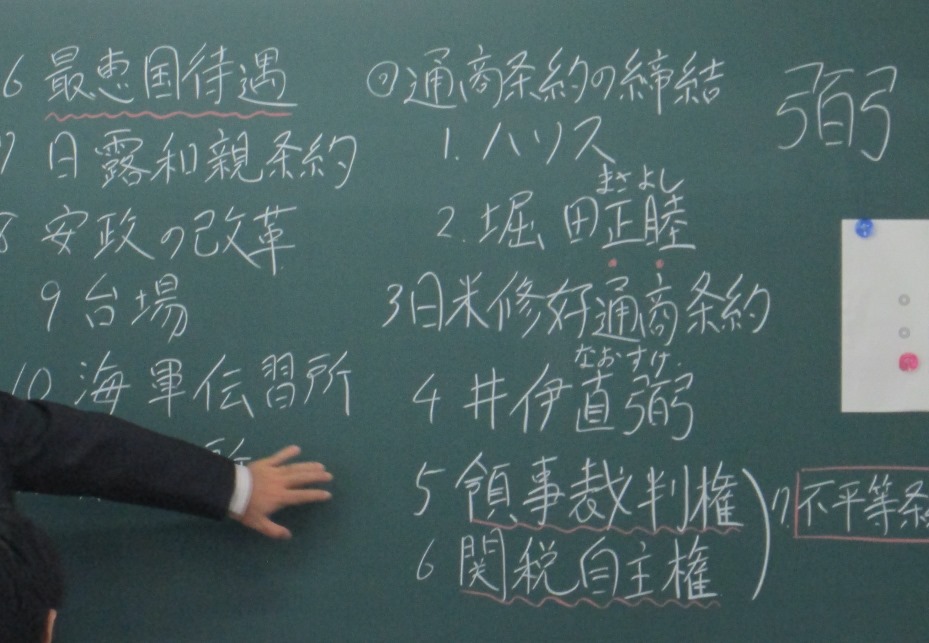 6 最恵国待遇
7 日露和親条約
8 安政の改革
9 台場
10 海軍伝習所
所
⑦通商条約の締結
1. ハリス
まさよし
2. 堀田正睦
3 日米修好通商条約
なおすけ
4 井伊直弼
5 領事裁判権
6 関税自主権
7 不平等条
弼